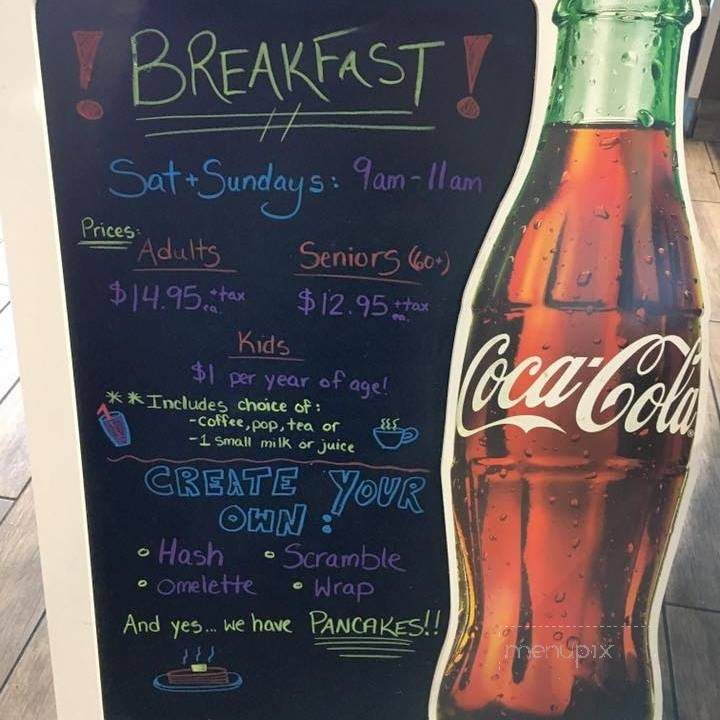 ! BREAKFAST !
Sat+Sundays: 9am-11am
Prices:
Adults Seniors (60+)
$14.95 +tax ea. $12.95 +tax ea.
Kids
$1 per year of age!
**Includes choice of:
-coffee, pop, tea or
-1 small milk or juice
CREATE YOUR
OWN:
◦ Hash ◦ Scramble
◦ Omelette • Wrap
And yes... we have PANCAKES!!
Coca-Cola
menupix